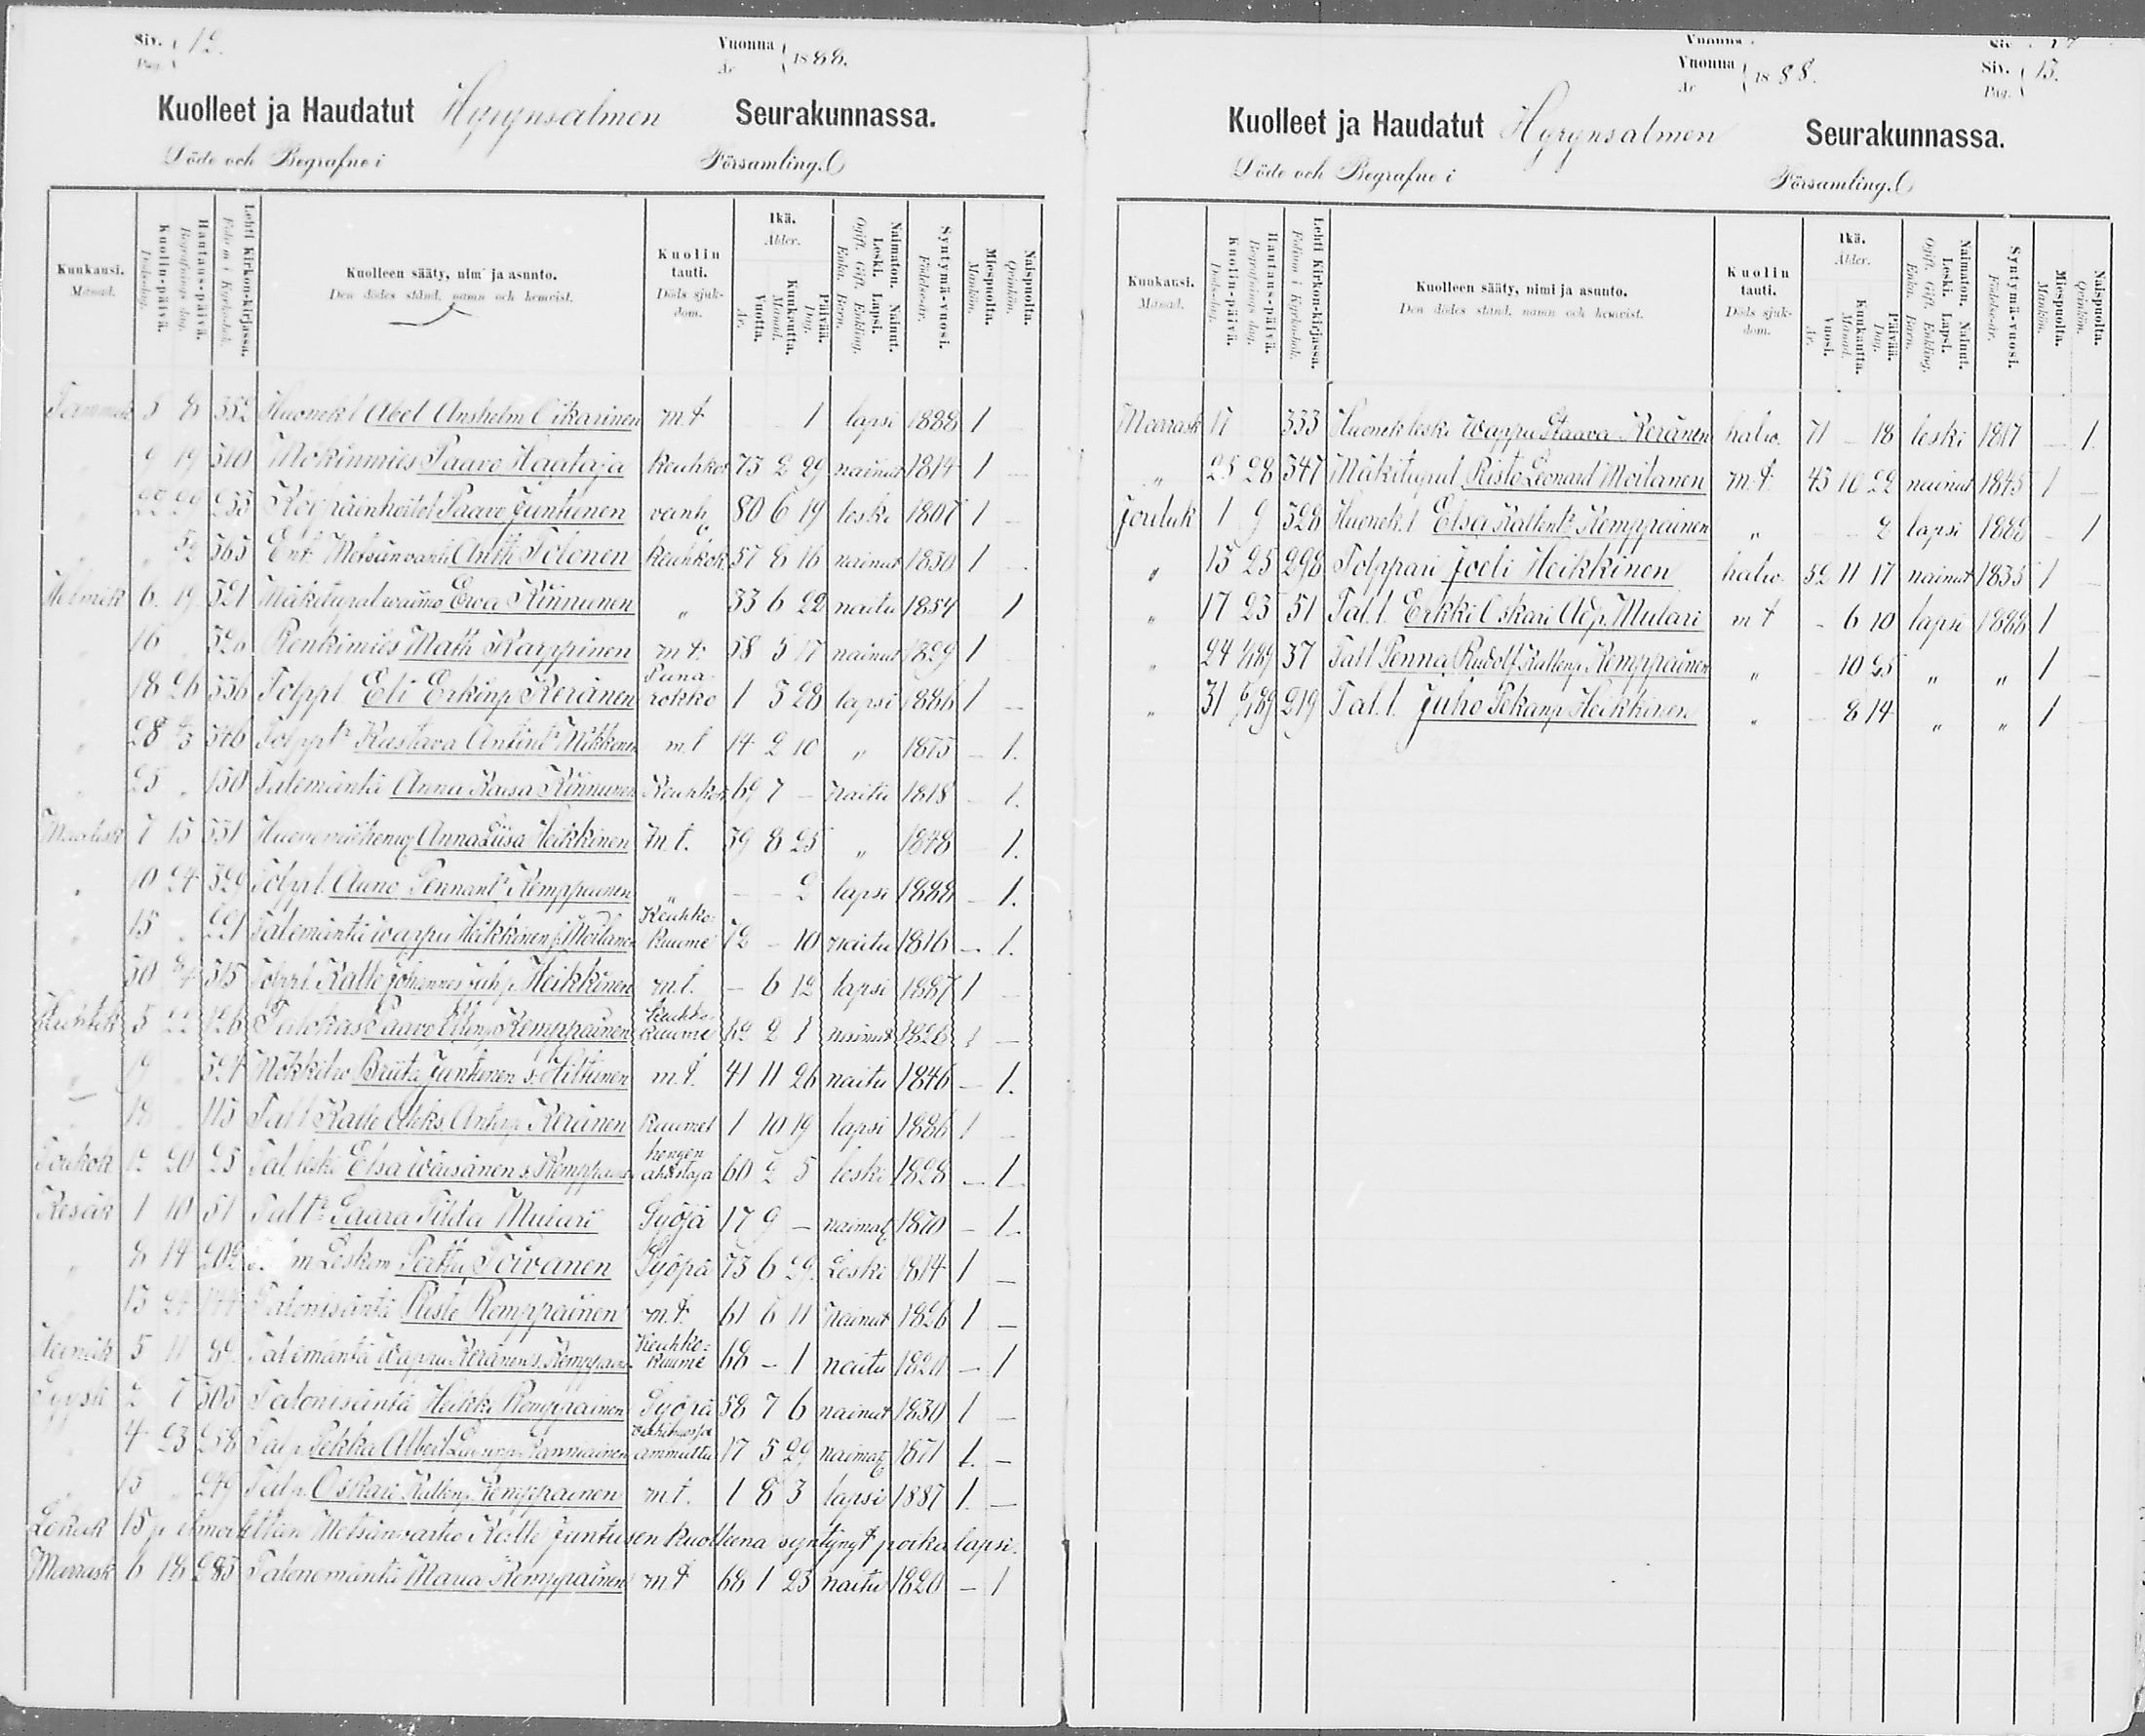 Siv. 12.
Pag.
Vuonna 1888.
År
Kuolleet ja Haudatut Hyrynsalmen Seurakunnassa.
Döde och Begrafne i Församling.
Kuukausi. Månad.
Kuolin-päivä. Dödsdag.
Hautaus-päivä. Begrafnings dag.
Lehti Kirkon-kirjassa. Folium i Kyrkobok.
Kuolleen sääty, nimi ja asunto.
Den dödes stånd, namn och hemvist.
Kuolin tauti. Döds sjukdom.
Ikä. Ålder.
Vuotta. År.
Kuukautta. Månad.
Päivää. Dag.
Naimaton. Nainut. Leski. Lapsi.
Ogift. Gift. Enkling. Enka. Barn.
Syntymä-vuosi. Födelseår.
Miespuolta. Mankön.
Naispuolta. Qvinkön.
Tammik 5 8 332 Huonek l Abel Anshelm Oikarinen m.t 1 lapsi 1888 1
" 9 19 310 Mökinmies Paavo Haataja Keuhkot 73 2 29 nainut 1814 1
" 22 29 233 Paavo Juntunen vanh 80 6 19 leski 1807 1
" " 365 Ent. Metsänvarti Antti Tolonen Keuhkot 57 8 16 nainut 1830 1
Helmik 6 19 321 Mäkitupal waimo Ewa Kinnunen " 33 6 22 naitu 1854 1
" 16 " 326 Renkimies Matti Karppinen m.t. 58 5 17 nainut 1829 1
" 18 26 336 Tolppl Eli Erkinp Keränen Puna-rokko 1 3 28 lapsi 1886 1
" 28 4/3 346 Kustava Antint Mikkonen m.t 14 2 10 " 1875 – 1.
" 25 " 150 Talemäntä Anna Kaisa Kinnunen Keuhkot 69 7 – naitu 1818 – 1.
Maalisk 7 15 331 Anna Liisa Heikkinen m.t. 39 8 25 " 1848 1.
" 10 24 329 Tolppl. Auno Pennant Kemppainen " – – 2 lapsi 1888 – 1.
" 15 " 221 Talemäntä Wappu Heikkinen s. Moilanen Keuhko-Kuume 72 – 10 naitu 1816 – 1.
" 30 8/4 315 Tolppl. Kalle Johannes Juh p. Heikkinen m.t. – 6 12 lapsi 1887 1
Huhtik 5 22 126 Paavo Kemppainen Keuhko-Kuume 62 2 1 nainut 1826 1 –
" 19 " 324 Briita Juntunen s. Hiltunen m.t. 41 11 26 naitu 1846 – 1.
" 18 " 115 Tal l Kalle Aleks. Antinp Keränen Kuumet 1 10 19 lapsi 1886 1 –
Toukok 12 20 25 Tal leski Elsa Wäisänen s. Kemppainen hengen ahdistaja 60 2 5 leski 1828 – 1
Kesäk 1 10 51 Tal tr Saara Tilda Mulari Syöjä 17 9 – naimat 1870 – 1
" 8 14 202 m Leskim Perttu Toivanen Syöpä 73 6 29. Leski 1814 1 –
" 15 24 144 Talonisäntä Risto Kemppainen m.t. 61 6 11 Nainut 1826 1 –
Heinäk 5 11 Talemäntä Wappu Keränen s. Kemppainen Keuhko-Kuume 68 – 1 naitu 1820 – 1
Syysk 2 7 305 Talonisäntä Heikki Kemppainen Syöpä 58 7 6 nainut 1830 1 –
" 4 23 258 Tal p Pekka Albert ammuttu 17 5 29 naimat 1871 1. –
" 15 " 249 Tal p. Oskari Kallenp Kemppainen m.t. 1 8 3 lapsi 1887 1. –
Lokak 15 p ilmoitettiin Metsänvartio Kalle Juntusen Kuolleena syntynyt poika lapsi.
Marrask 6 18 283 Talonemäntä Maria Kemppainen m.t 68 1 23 naitu 1820 – 1
Vuonna
Siv. 13.
Pag.
Vuonna 1888.
År
Kuolleet ja Haudatut Hyrynsalmen Seurakunnassa.
Döde och Begrafne i Församling.
Kuukausi. Månad.
Kuolin-päivä. Dödsdag.
Hautaus-päivä. Begrafnings dag.
Lehti Kirkon-kirjassa. Folium i Kyrkobok.
Kuolleen sääty, nimi ja asunto.
Den dödes stånd, namn och hemvist.
Kuolin tauti. Döds sjukdom.
Ikä. Ålder.
Vuosi. År.
Kuukautta. Månad.
Päivää. Dag.
Naimaton. Nainut. Leski. Lapsi.
Ogift. Gift. Enkling. Enka. Barn.
Syntymä-vuosi. Födelseår.
Miespuolta. Mankön.
Naispuolta. Qvinkön.
Marrask 17 333 Huonek leski Wappu Staava Keränen halv. 71 – 18 leski 1817 – 1.
" 25 28 347 Mäkitupal Risto Leonard Moilanen m.t. 43 10 22 nainut 1845 1 –
Jouluk 1 9 328 Huonek. l Elsa Kallent Kemppainen " 2 lapsi 1888 – 1
" 15 25 298 Tolppari Joeli Heikkinen halv. 52 11 17 nainut 1835 1 –
" 17 23 51 Tal. l. Erkki Oskari Ad p. Mulari m t – 6 10 lapsi 1888 1
" 24 1/89 37 Tal l Penna Rudolf Kallenp Kemppainen " – 10 25 " " 1 –
" 31 6/1 89 219 Tal. l. Juho Pekanp Heikkinen " – 8 14 " " 1